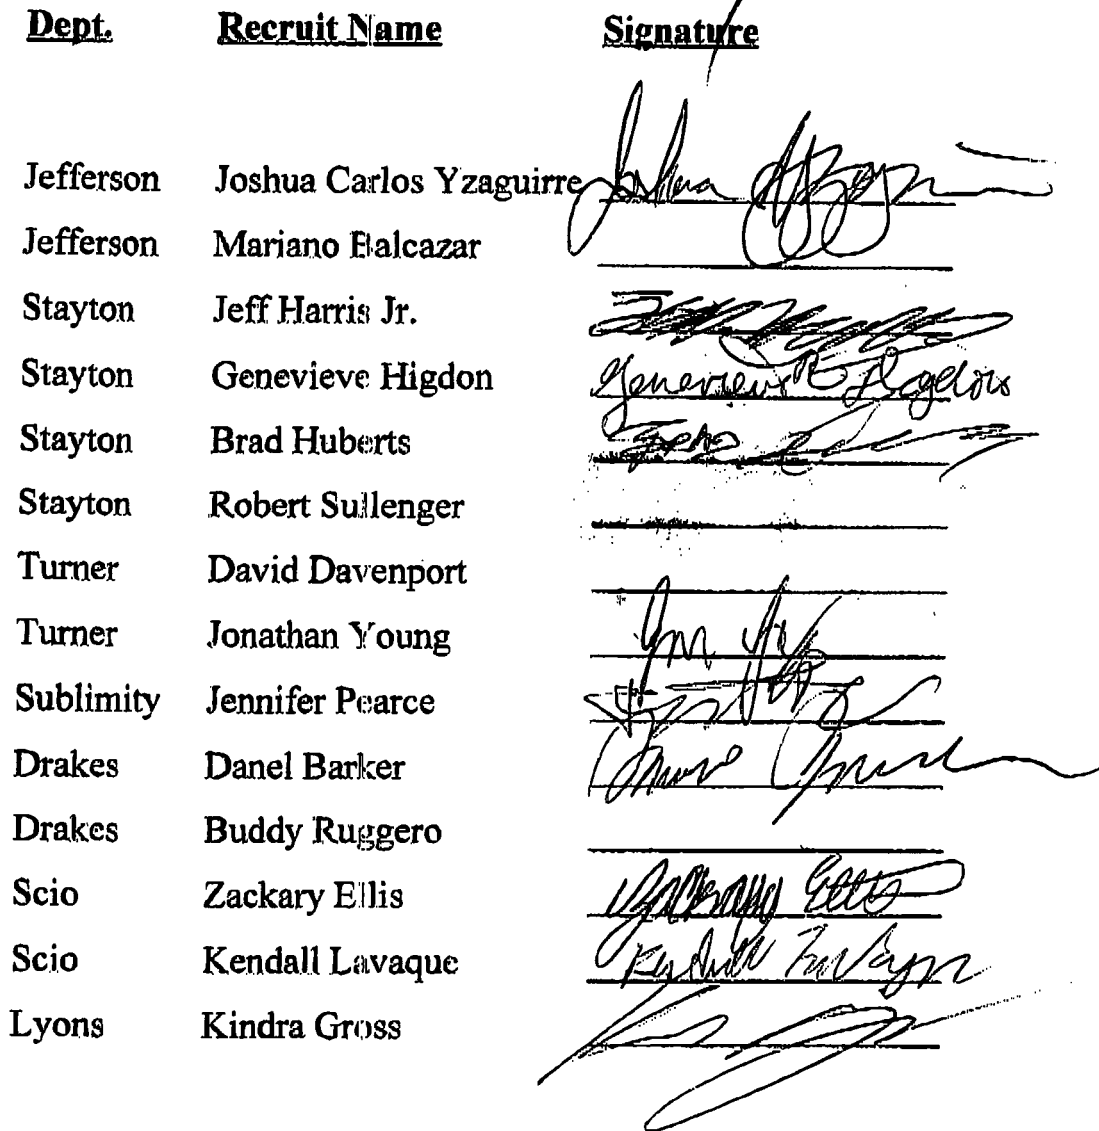 Dept. Recruit Name Signature
Jefferson Joshua Carlos Yzaguirre Joshua
Jefferson Mariano Balcazar
Stayton Jeff Harris Jr.
Stayton Genevieve Higdon Genevieve
Stayton Brad Huberts
Stayton Robert Sullenger
Turner David Davenport
Turner Jonathan Young
Sublimity Jennifer Pearce
Drakes Danel Barker
Drakes Buddy Ruggero
Scio Zackary Ellis Zackary Ellis
Scio Kendall Lavaque Kendall
Lyons Kindra Gross